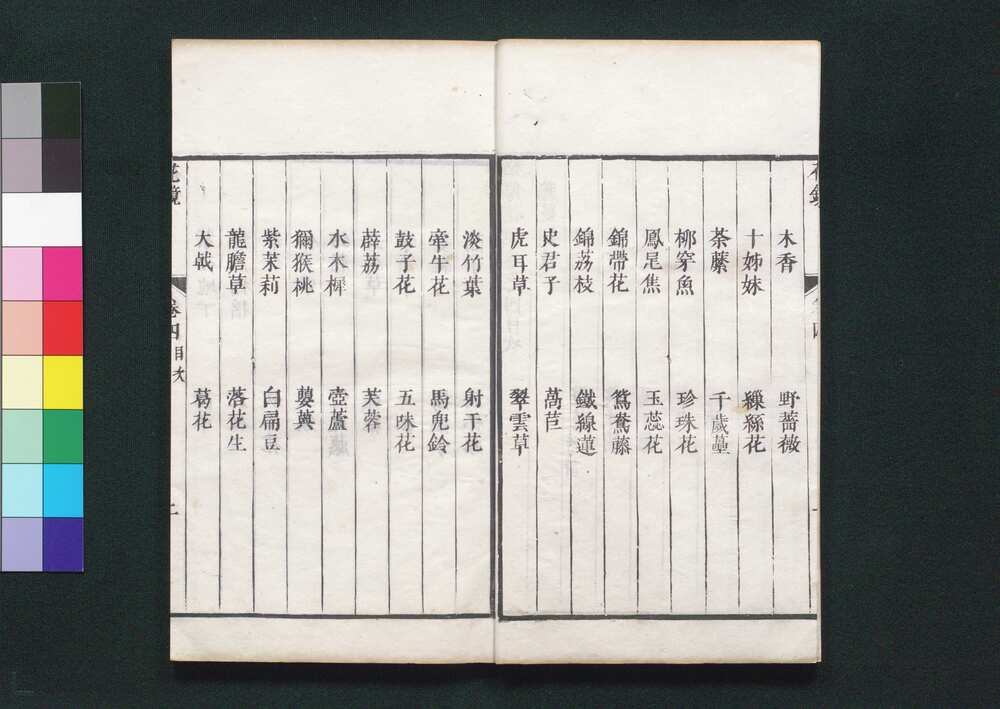 木香 野薔薇
十姊妹 繅絲花
荼蘼 千歲蔂
柳穿魚 珍珠花
鳳尾蕉 玉蕊花
錦帶花 鴛鴦藤
錦荔枝 鐵線蓮
史君子 萵苣
虎耳草 翠雲草
淡竹葉 射干花
牽牛花 馬兜鈴
鼓子花 五味花
薜荔 芙蓉
水木樨 壺蘆
獼猴桃 蘡薁
紫茉莉 白扁豆
龍膽草 落花生
大戟 葛花
花鏡 卷四目次 二